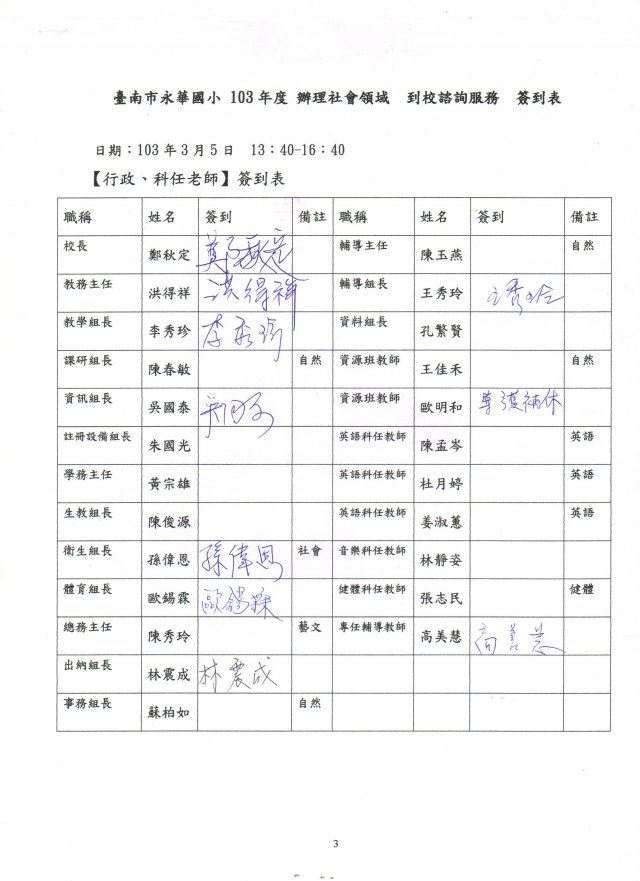 臺南市永華國小 103年度 辦理社會領域 到校諮詢服務 簽到表
日期:103年3月5日 13:40-16:40
【行政、科任老師】簽到表
職稱 姓名 簽到 備註 職稱 姓名 簽到 備註
校長 鄭秋定 鄭秋定 輔導主任 陳玉燕 自然
教務主任 洪得祥 洪得祥 輔導組長 王秀玲 王秀玲
教學組長 李秀珍 李秀珍 資料組長 孔繁賢
課研組長 陳春敏 自然 資源班教師 王佳禾 自然
資訊組長 吳國泰 資源班教師 歐明和 導護補休
註冊設備組長 朱國光 英語科任教師 陳孟岑 英語
學務主任 黃宗雄 英語科任教師 杜月婷 英語
生教組長 陳俊源 英語科任教師 姜淑蕙 英語
衛生組長 孫偉恩 孫偉恩 社會 音樂科任教師 林靜姿
體育組長 歐錫霖 歐錫霖 健體科任教師 張志民 健體
總務主任 陳秀玲 藝文 專任輔導教師 高美慧 高美慧
出納組長 林震成 林震成
事務組長 蘇柏如 自然
3